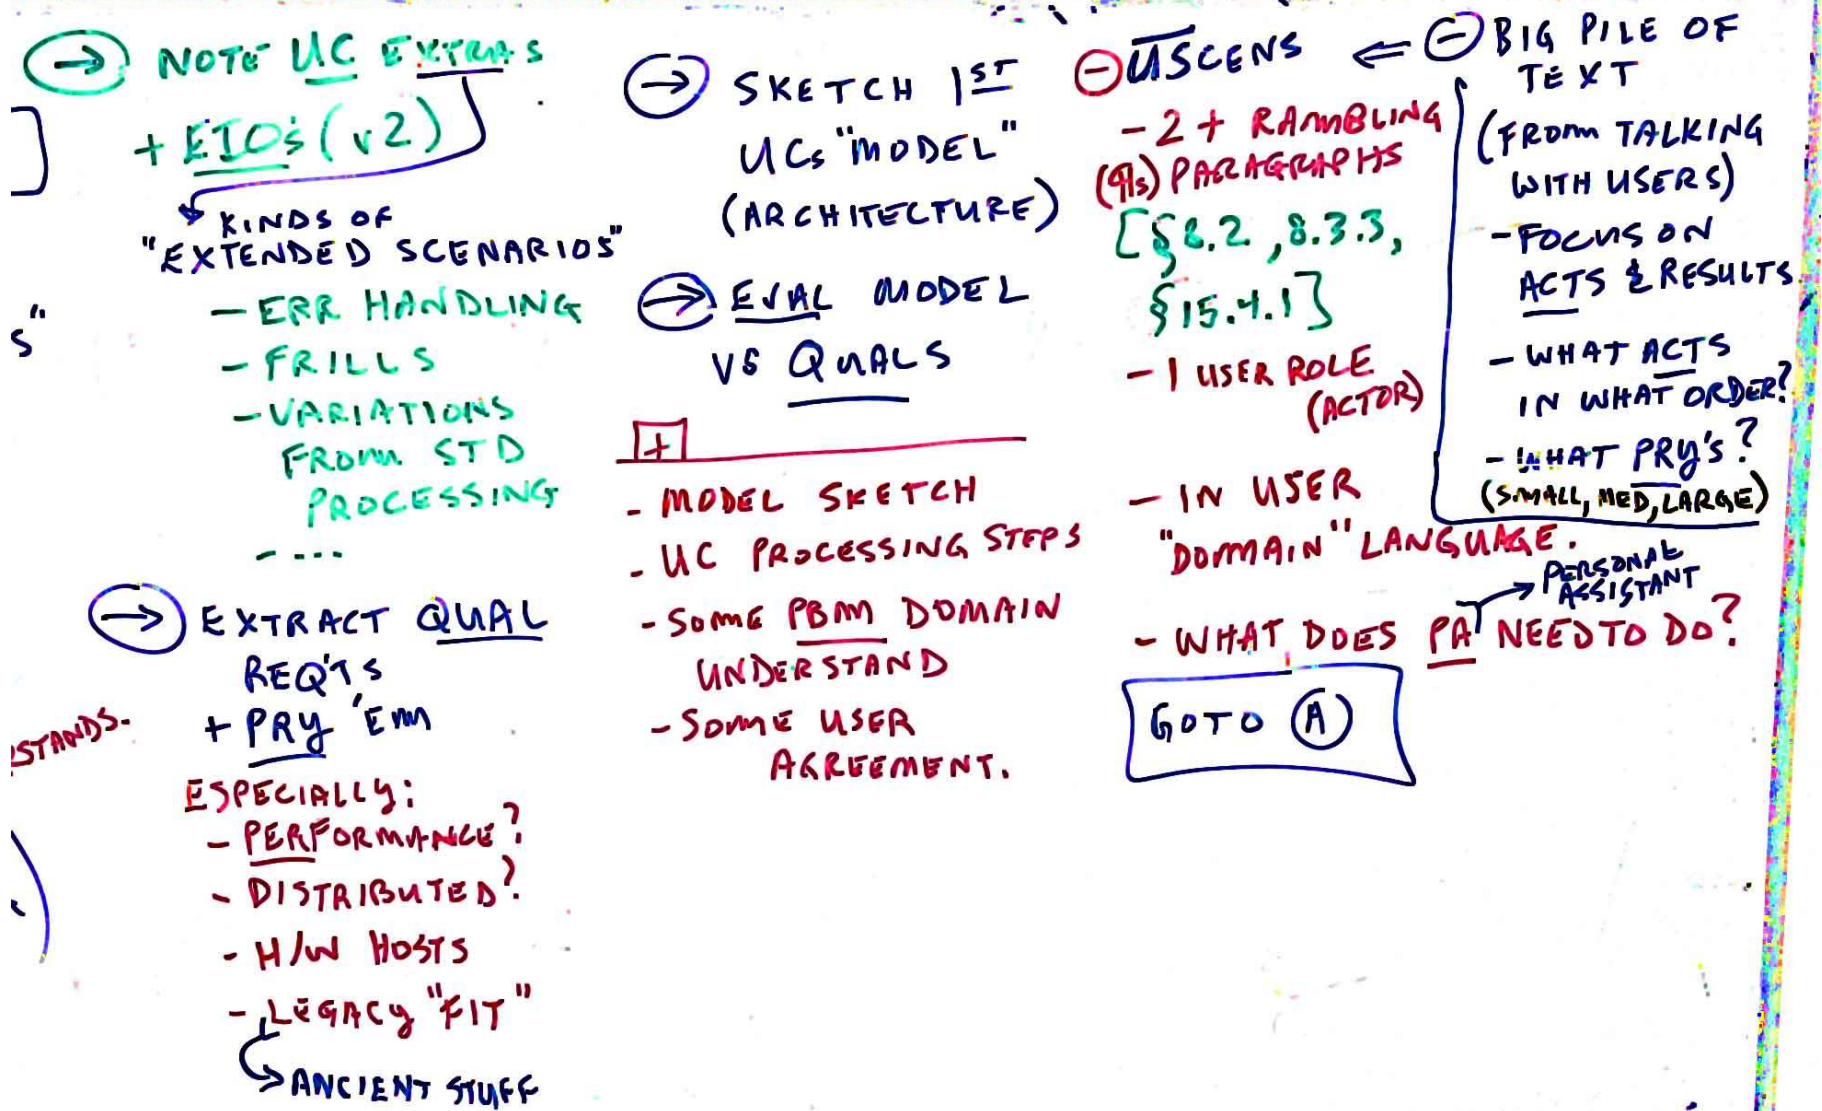 → NOTE UC EXTRAS
+ EIO's (v2)
KINDS OF
"EXTENDED SCENARIOS"
- ERR HANDLING
- FRILLS
- VARIATIONS
FROM STD
PROCESSING
- ...
→ EXTRACT QUAL
REQ'TS
+ PRY 'EM
ESPECIALLY:
- PERFORMANCE?
- DISTRIBUTED?
- H/W HOSTS
- LEGACY "FIT"
ANCIENT STUFF
]
S"
STANDS.
)
→ SKETCH 1ST
UCs "MODEL"
(ARCHITECTURE)
→ EVAL MODEL
VS QUALS
+
- MODEL SKETCH
- UC PROCESSING STEPS
- SOME PBM DOMAIN
UNDERSTAND
- SOME USER
AGREEMENT.
- USCENS ⇐
- 2+ RAMBLING
(¶s) PARAGRAPHS
[§8.2, 8.3.3,
§15.4.1]
- 1 USER ROLE
(ACTOR)
- IN USER
"DOMAIN" LANGUAGE.
- WHAT DOES PA NEED TO DO?
PERSONAL
ASSISTANT
GOTO A
- BIG PILE OF
TEXT
(FROM TALKING
WITH USERS)
- FOCUS ON
ACTS & RESULTS
- WHAT ACTS
IN WHAT ORDER?
- WHAT PRY'S?
(SMALL, MED, LARGE)